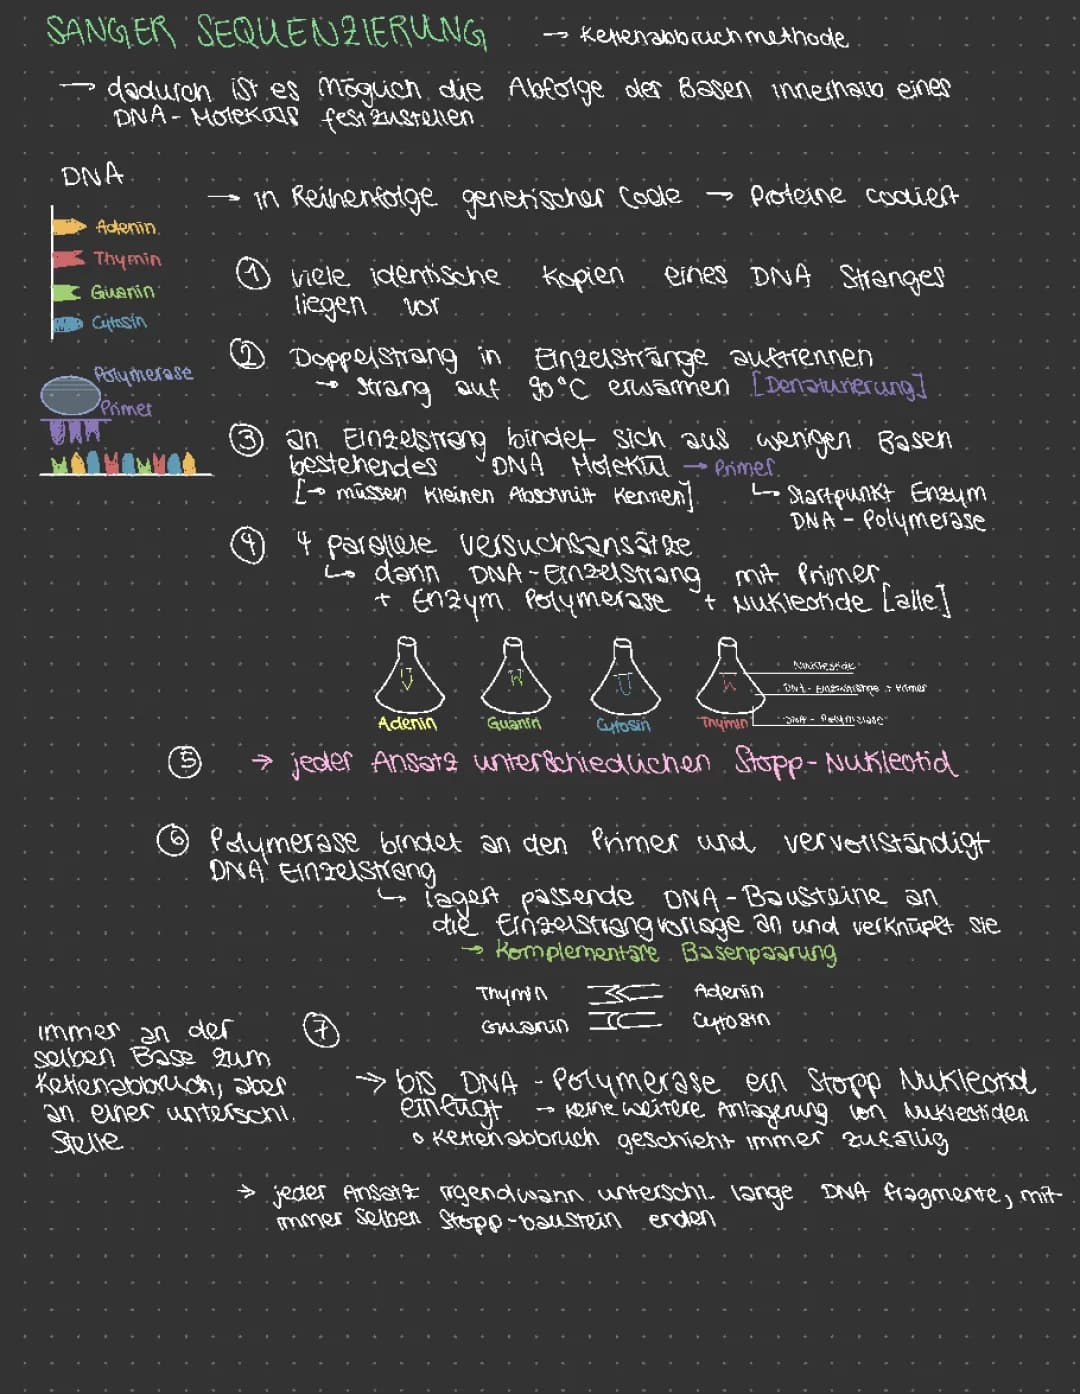 SANGER SEQUENZIERUNG → Kettenabbruchmethode
→ dadurch ist es möglich die Abfolge der Basen innerhalb eines
DNA-Moleküls festzustellen
DNA
→ in Reihenfolge genetischer Code → Proteine codiert
Adenin
Thymin
Guanin
Cytosin
① viele identische Kopien eines DNA Stranges
liegen vor
② Doppelstrang in Einzelstränge auftrennen
→ Strang auf 90°C erwärmen [Denaturierung]
Polymerase
Primer
③ an Einzelstrang bindet sich aus wenigen Basen
bestehendes DNA Molekül → Primer
[→ müssen kleinen Abschnitt kennen] ↳ Startpunkt Enzym
DNA-Polymerase
④ 4 parallele Versuchsansätze
↳ dann DNA-Einzelstrang mit Primer
+ Enzym Polymerase + Nukleotide [alle]
Nukleotide
DNA-Einzelstränge + Primer
DNA-Polymerase
Adenin Guanin Cytosin Thymin
⑤ → jeder Ansatz unterschiedlichen Stopp-Nukleotid
⑥ Polymerase bindet an den Primer und vervollständigt
DNA Einzelstrang
↳ lagert passende DNA-Bausteine an
die Einzelstrangvorlage an und verknüpft sie
→ Komplementäre Basenpaarung
Thymin Adenin
Guanin Cytosin
immer an der
selben Base zum
Kettenabbruch, aber
an einer unterschl.
Stelle
⑦
→ bis DNA-Polymerase ein Stopp Nukleotid
einfügt → keine weitere Anlagerung von Nukleotiden
° Kettenabbruch geschieht immer zufällig
→ jeder Ansatz irgendwann unterschl. lange DNA fragmente, mit
immer selben Stopp-baustein enden